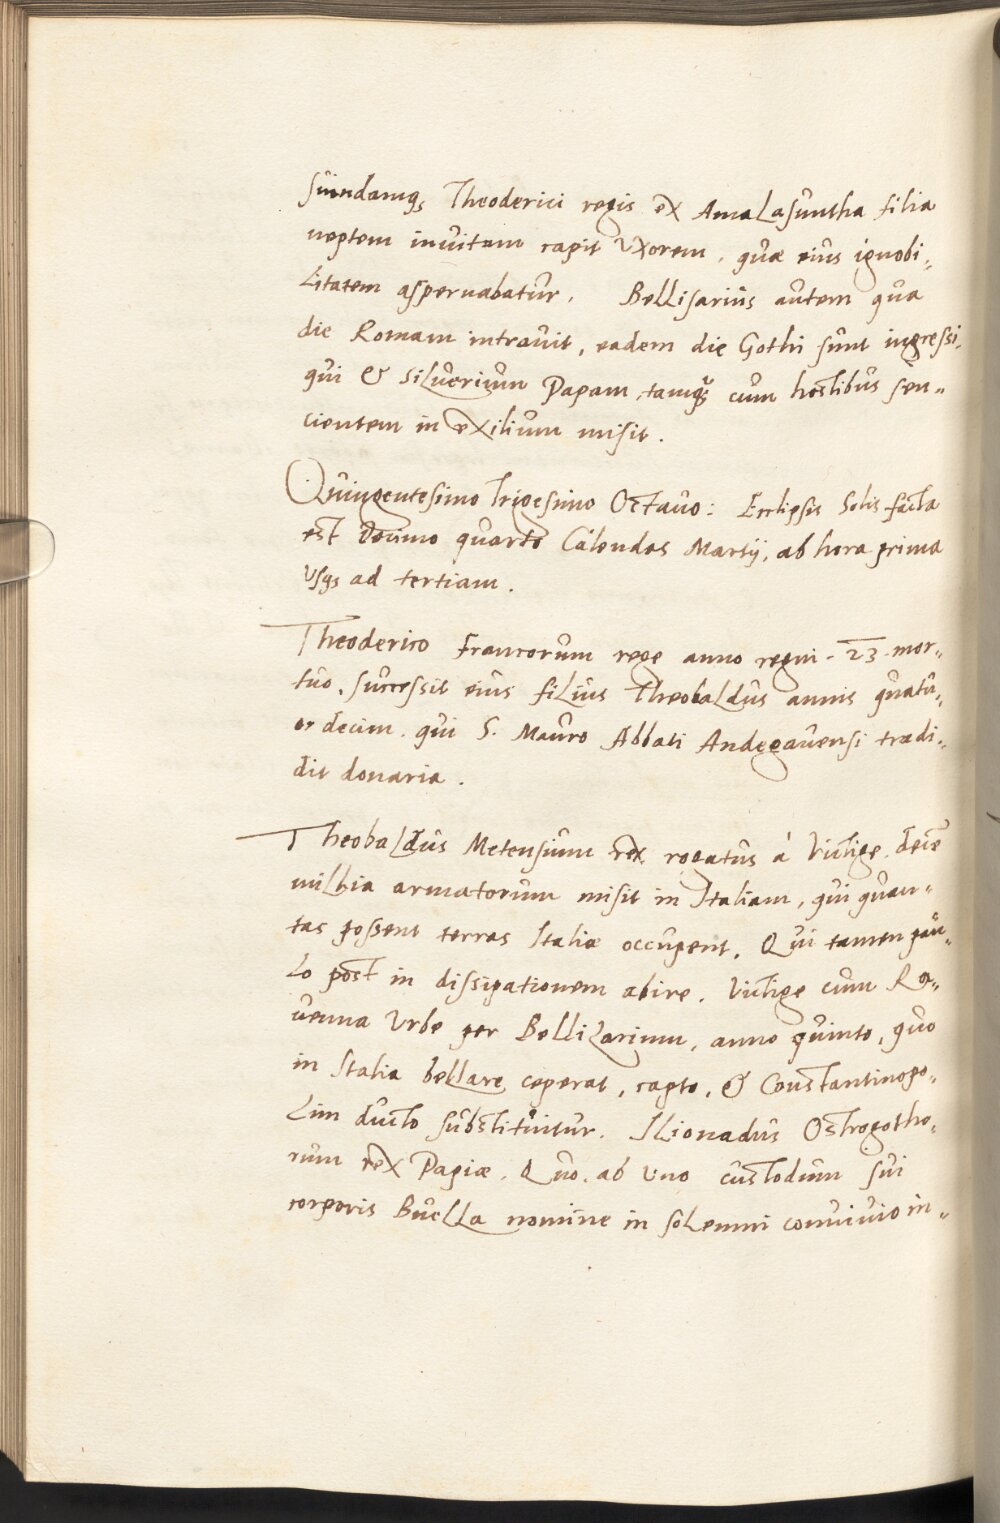 suindamq₃ Theoderici regis ex AmaLasuntha filia
neptem inuitam capit Vxorem, quæ eius ignobi„
Litatem aspernabatur. BeLLisarius autem qua
die Romam intrauit, eadem die Gothi sunt ingressi.
qui & SiLuerium Papam, tamq̃ cum hostibus sen„
cientem in exilium misit.
Quingentesimo Trigesimo Octauo: Ecclipsis Solis facta
est Decimo quarto Calendas Martij, ab hora prima
Vsq₃ ad tertiam.
Theoderico Francorum rege anno regni - 23 - mor„
tuo, successit eius fiLius TheobaLdus annis quatu„
or decim, qui S. Mauro Abbati Andegauensi tradi„
dit donaria.
TheobaLdus Metensium rex rogatus á Victige, decẽ
millia armatorum misit in Italiam, qui quan„
tas possent terras Italiæ occupent. Qui tamen pau„
Lo post in dissipationem abire. Victige cum Ra„
uenna Vrbe per BelliZarium, anno quinto, quo
in Italia bellare ceperat, capto, & Constantinopo„
Lim ducto substituitur. ILionadus Ostrogotho„
rum rex Papiæ. Quo, ab uno custodum sui
corporis BueLLa nomine in soLemni conuiuio in„